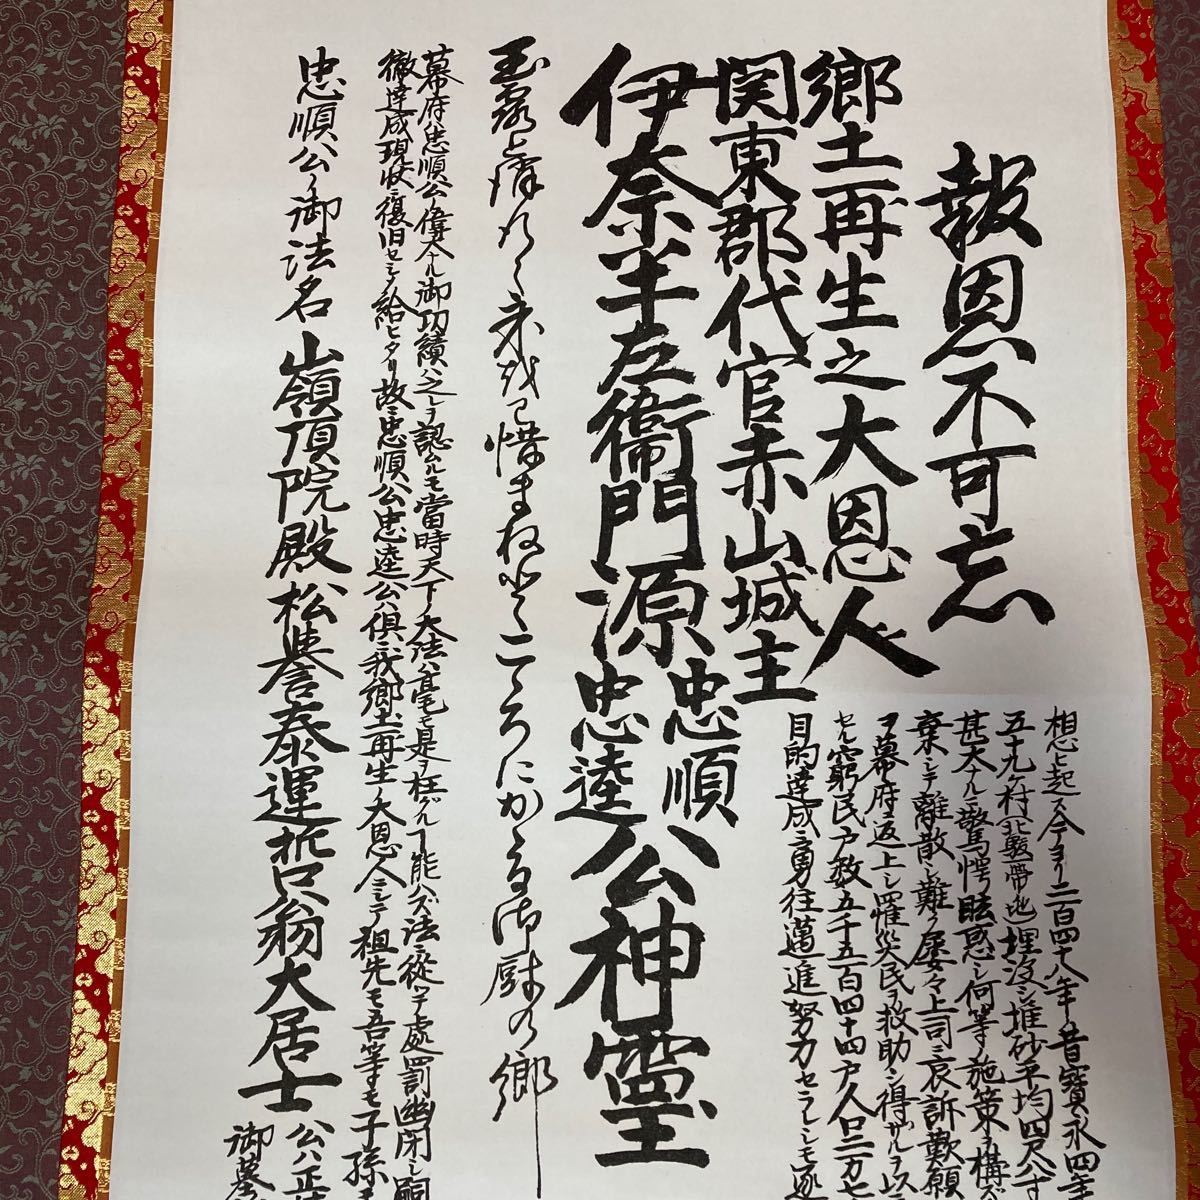 報恩不可忘
郷土再生之大恩人
関東郡代官赤山城主
相起ス今ヨリ二百四十八年昔寳永四年
五十九ケ村(北駿帯地埋没シ堆砂平均四尺八寸
甚大ナルニ驚愕眩惑シ何等ノ施策ヲ構ズ
棄シテ離散シ難ク屡々上司ニ哀訴歎願
ヲ幕府ニ返上シ罹災民ヲ救助シ得ザルヲ以
セル窮民戸数五千五百四十四戸人口二万七
目的達成ニ勇往邁進努力セラレシモ遂
伊奈半左衛門源忠順忠逵公神霊
玉露と消行く末越し惜まねどこころにかかる御厨の郷
幕府忠順公ノ偉大ナル御功績ハ之レヲ認ムルモ當時天下ノ大法ハ毫モ是ヲ枉グル事能ハズ法ニ従テ處罰幽閉シ嗣
徹達成現状ニ復旧セシメ給ヒタリ故ニ忠順公忠逵公ハ倶ニ我郷土再生ノ大恩人ニシテ祖先モ吾等モ子孫モ
忠順公ノ御法名山嶺頂院殿松誉泰運哲翁大居士
公ハ正
御墓